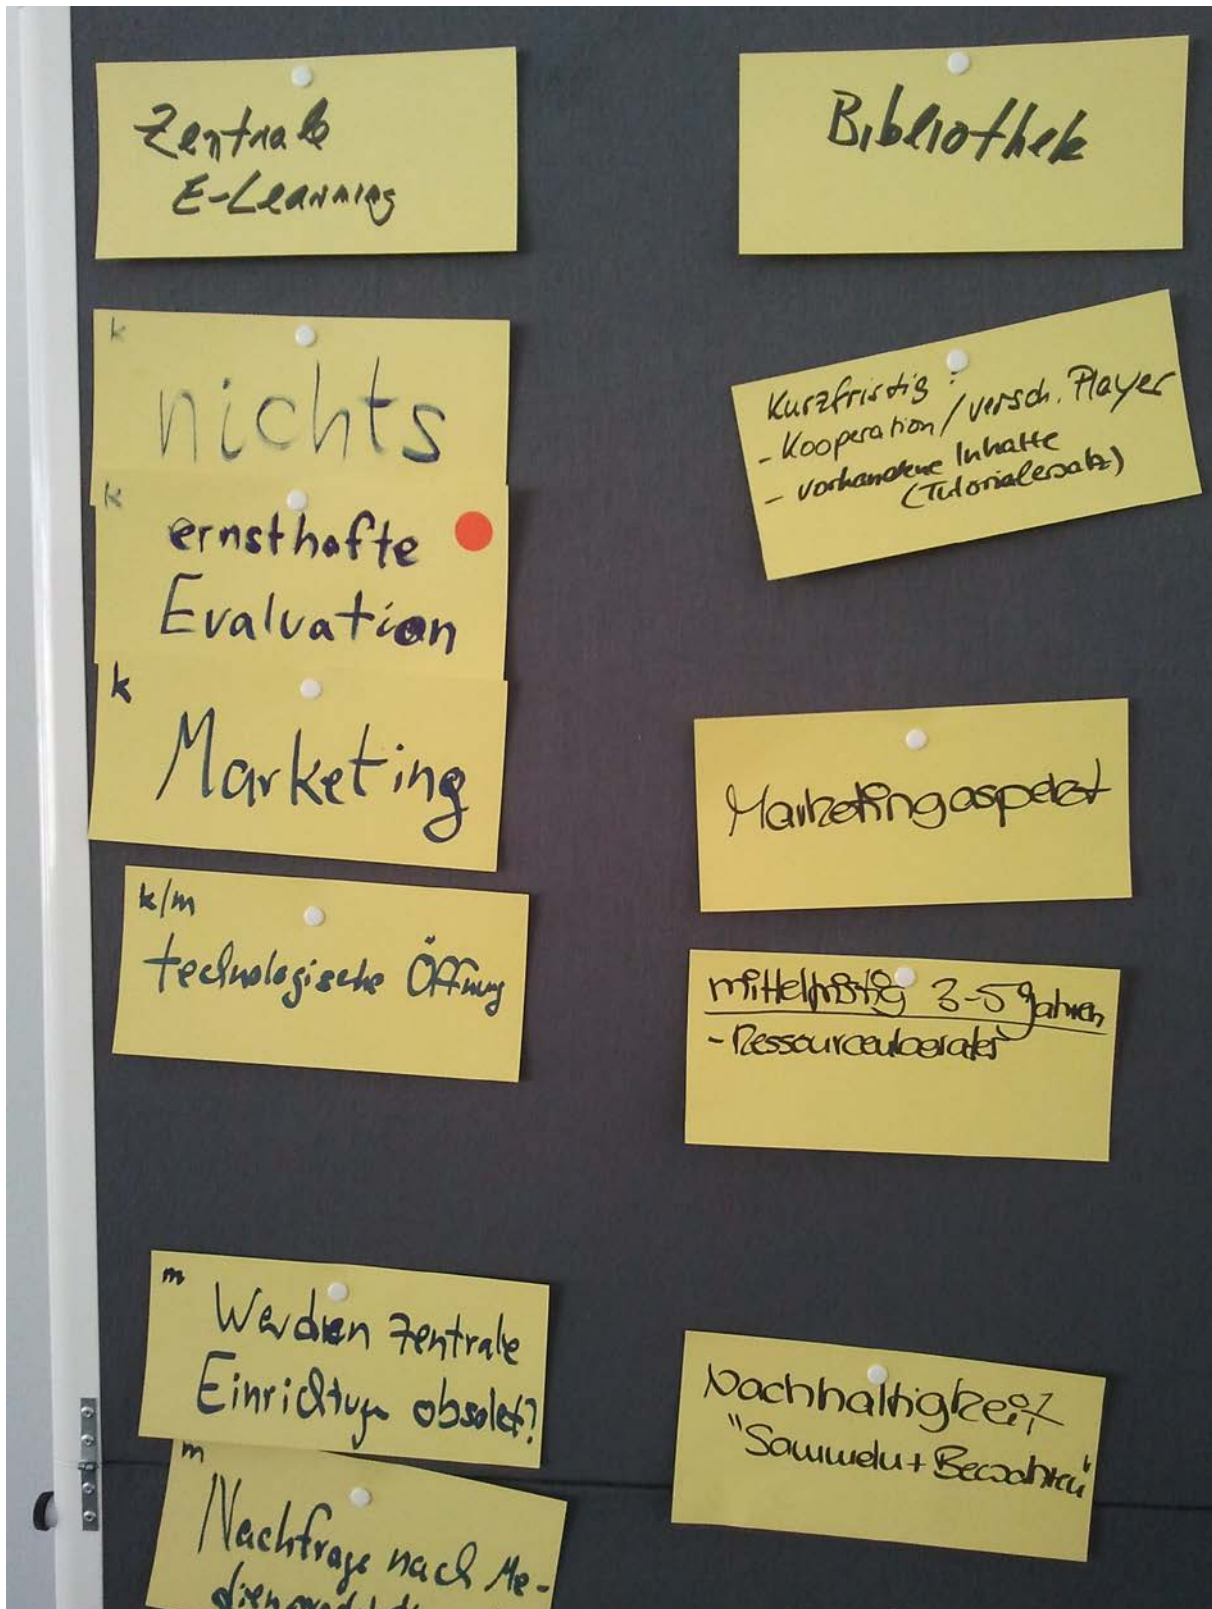 Zentrale
E-Learning
k
nichts
k
ernsthafte
Evaluation
k
Marketing
k/m
technologische Öffnung
m
Werden zentrale
Einrichtungen obsolet?
m
Nachfrage nach Me-
Bibliothek
Kurzfristig:
- Kooperation/versch. Player
- vorhandene Inhalte
(Tutorialersatz)
Marketingaspekt
mittelfristig 3-5 Jahren
- Ressourcenberater
Nachhaltigkeit
"Sammeln + Bewahren"